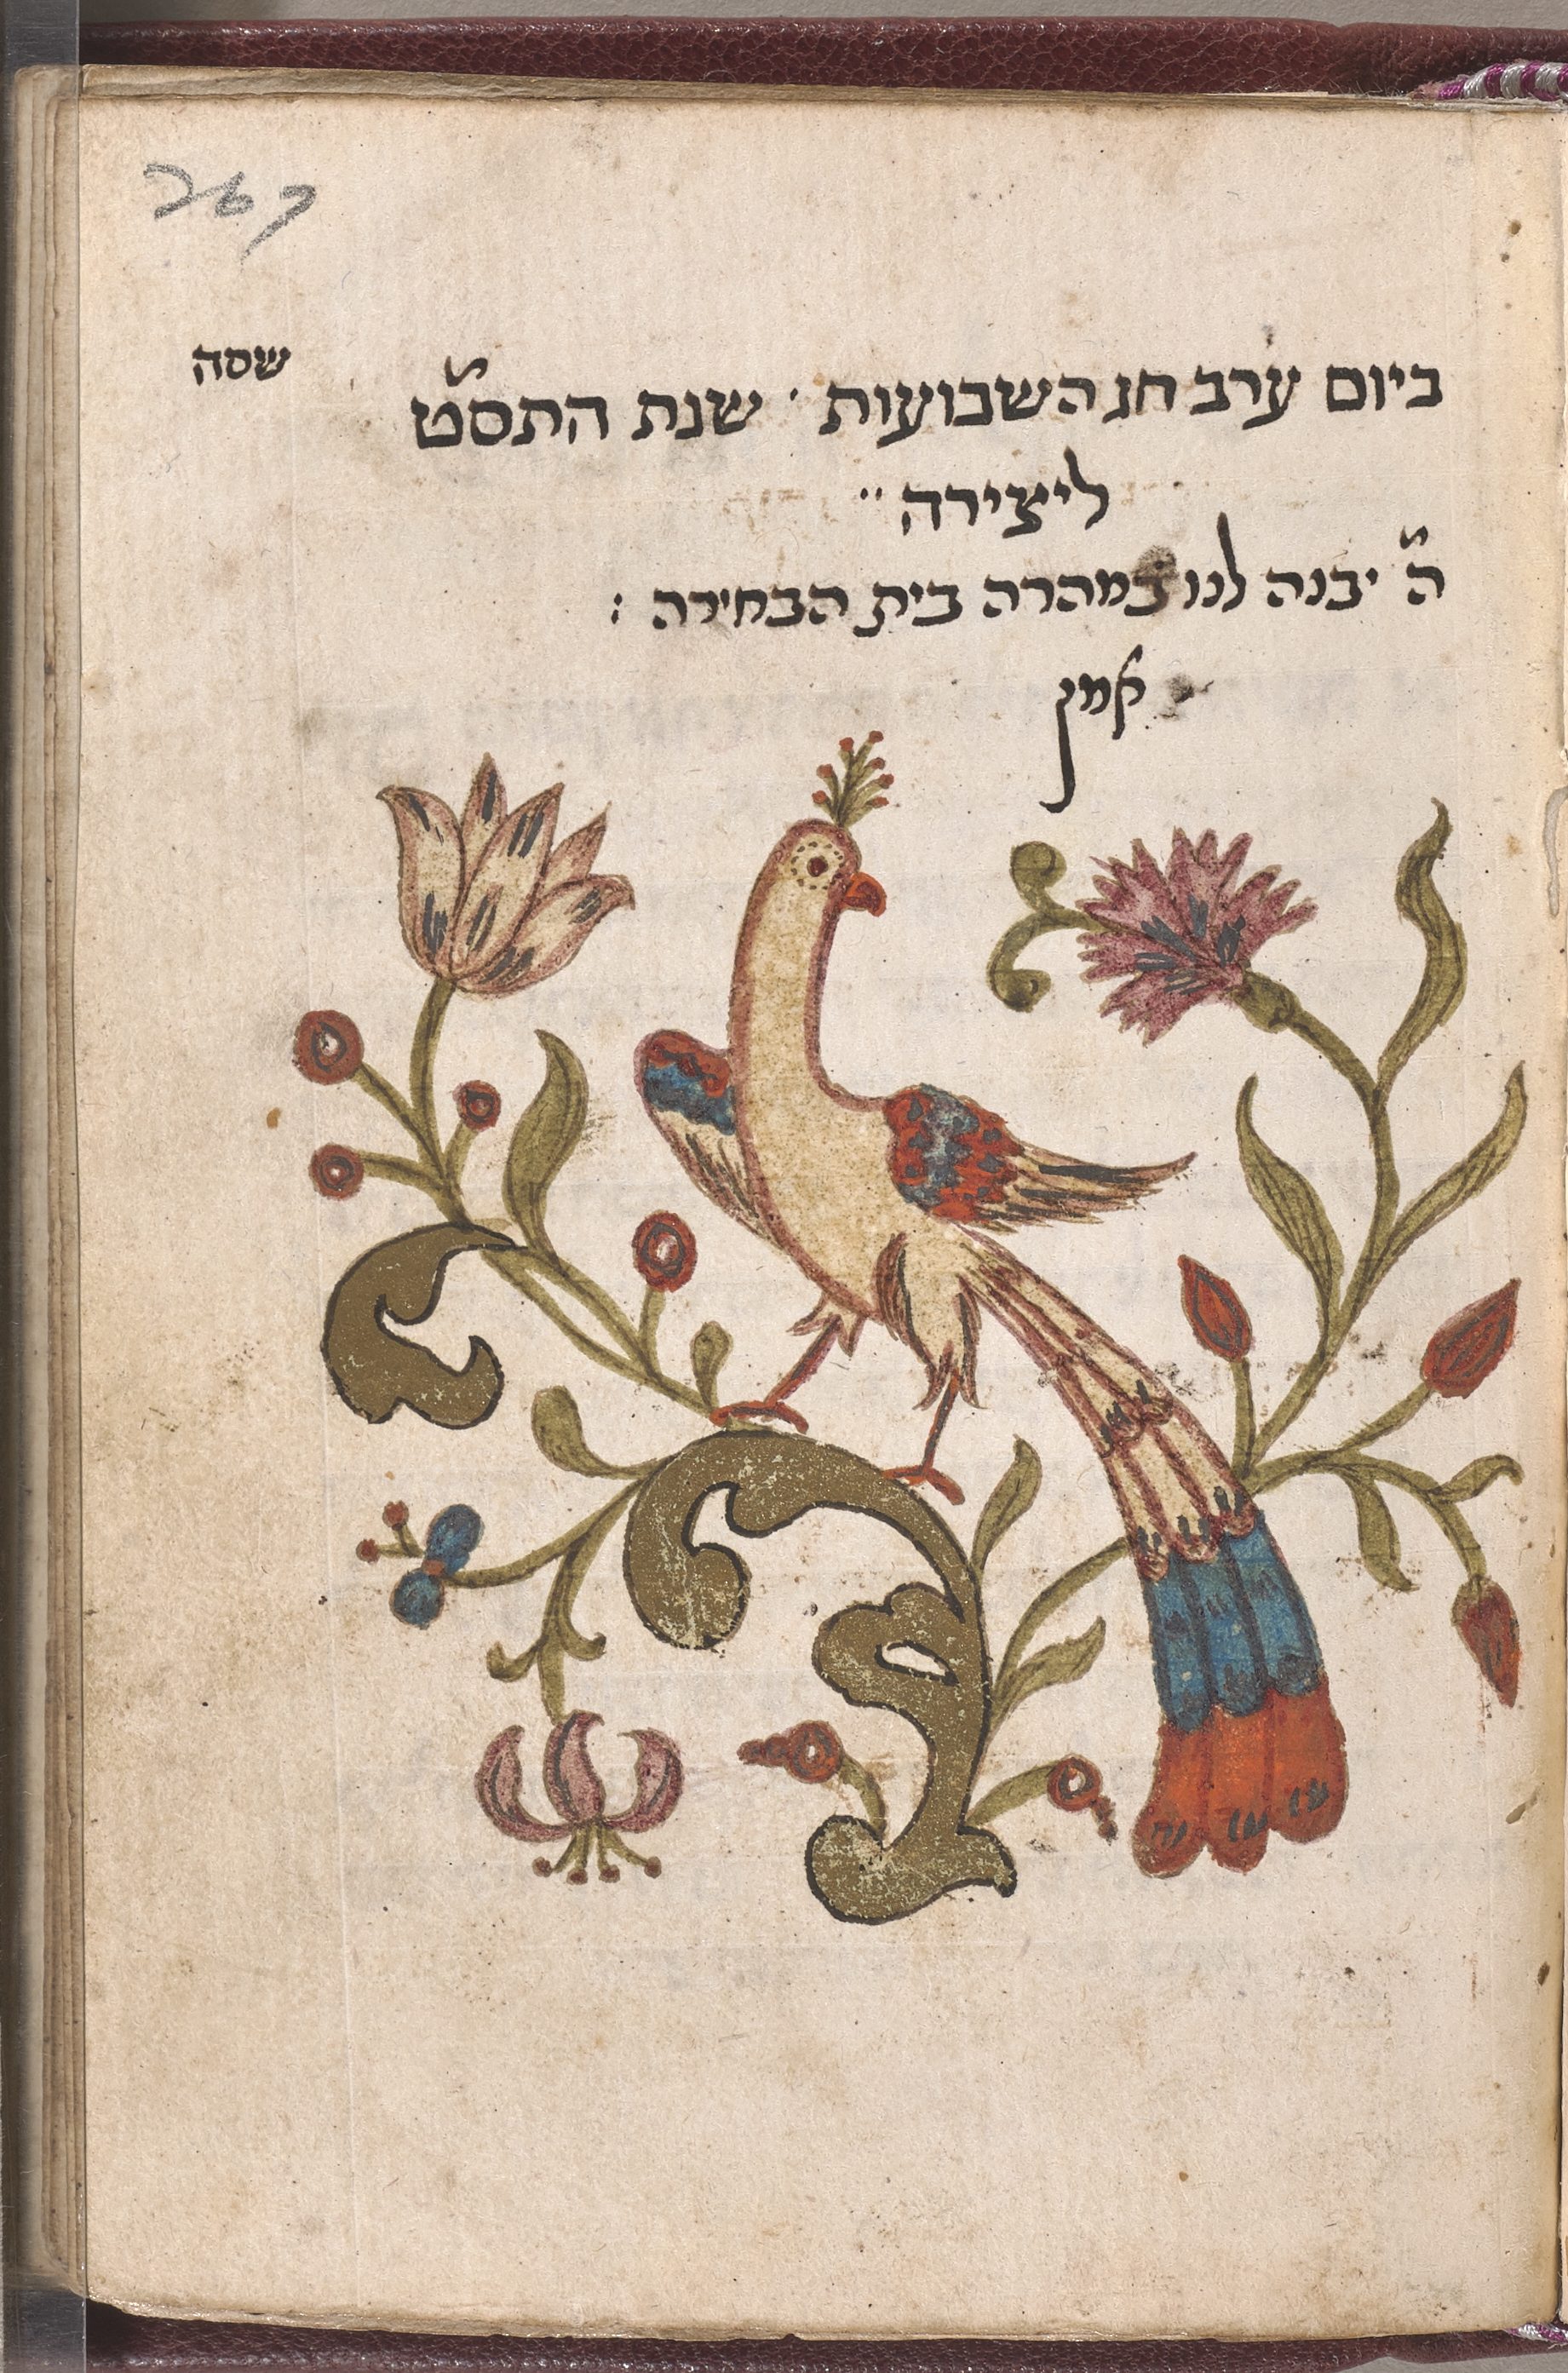 267
שסה
ביום ערב חג השבועות · שנת התס״ט
ליצירה ״
ה״ יבנה לנו במהרה בית הבחירה :
אמן